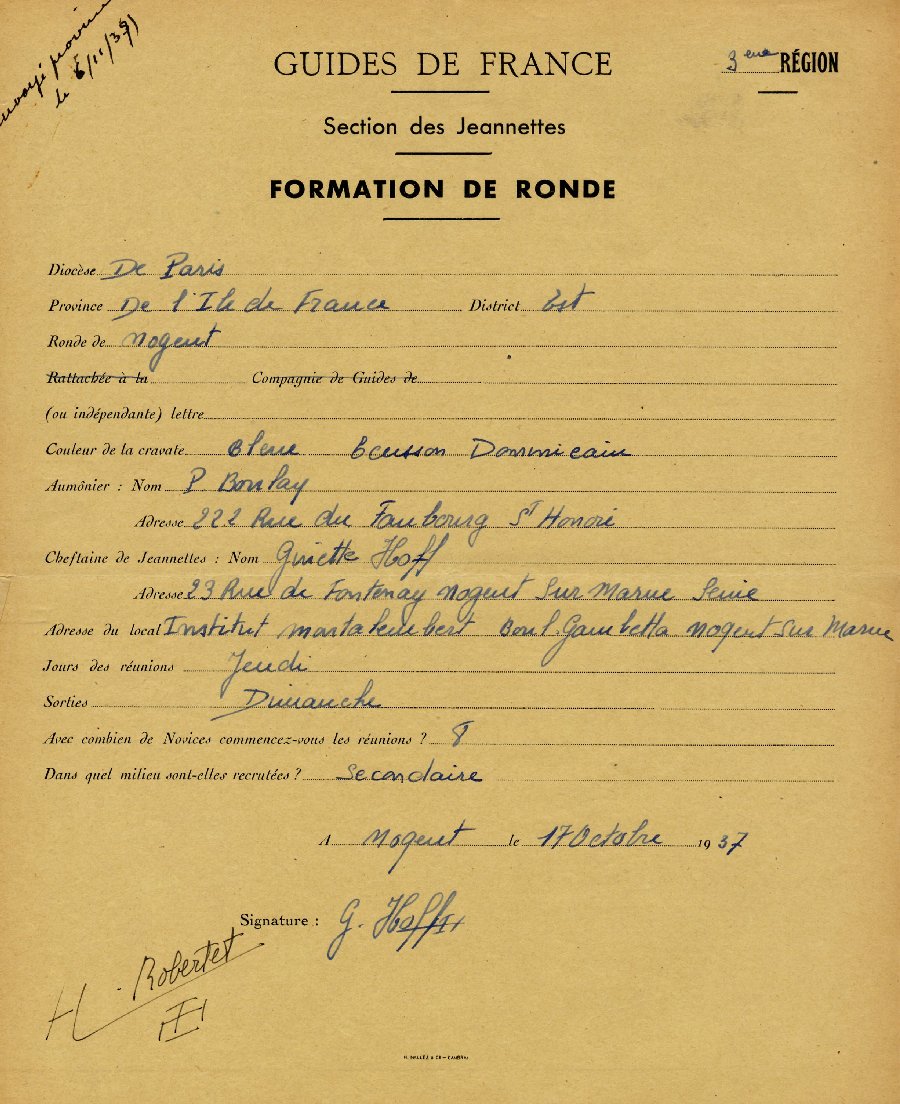 envoyé province
le 6/11/37)
GUIDES DE FRANCE
3eme RÉGION
Section des Jeannettes
FORMATION DE RONDE
Diocèse De Paris
Province De l'Ile de France District Est
Ronde de Nogent
Rattachée à la Compagnie de Guides de
(ou indépendante) lettre
Couleur de la cravate Bleue Ecusson Dominicain
Aumônier : Nom P. Boulay
Adresse 222 Rue du Faubourg St Honoré
Cheftaine de Jeannettes : Nom Ginette Hoff
Adresse 23 Rue de Fontenay Nogent Sur Marne Seine
Adresse du local Institut Montalembert Boul. Gambetta Nogent Sur Marne
Jours des réunions Jeudi
Sorties Dimanche
Avec combien de Novices commencez-vous les réunions ? 8
Dans quel milieu sont-elles recrutées ? Secondaire
A Nogent le 17 Octobre 1937
Signature : G. Hoff
H. Robertet